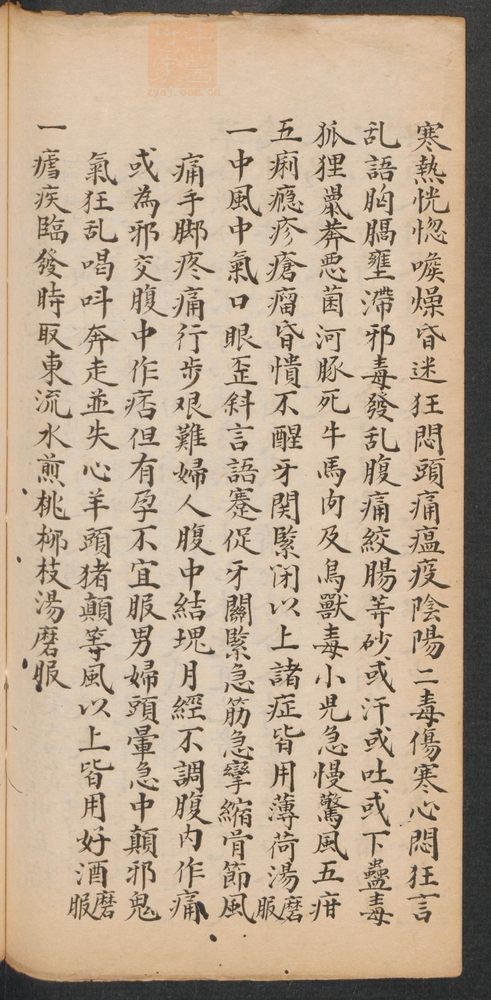 寒熱恍惚喉燥昏迷狂悶頭痛瘟疫陰陽二毒傷寒心悶狂言
乱語胸膈壅滯邪毒發乱腹痛絞腸等砂或汗或吐或下蠱毒
狐狸鼠莽恶菌河豚死牛馬肉及鳥獸毒小児急慢驚風五疳
五痢瘾疹瘡瘤昏憒不醒牙関緊闭以上諸症皆用薄荷湯磨服
一中風中氣口眼歪斜言語蹇促牙關緊急筋急攣縮骨節風
痛手脚疼痛行步艰難婦人腹中結塊月經不調腹内作痛
或為邪交腹中作痞但有孕不宜服男婦頭暈急中顛邪鬼
氣狂乱唱呌奔走並失心羊頭猪顛等風以上皆用好酒磨服
一瘧疾臨發時取東流水煎桃柳枝湯磨服